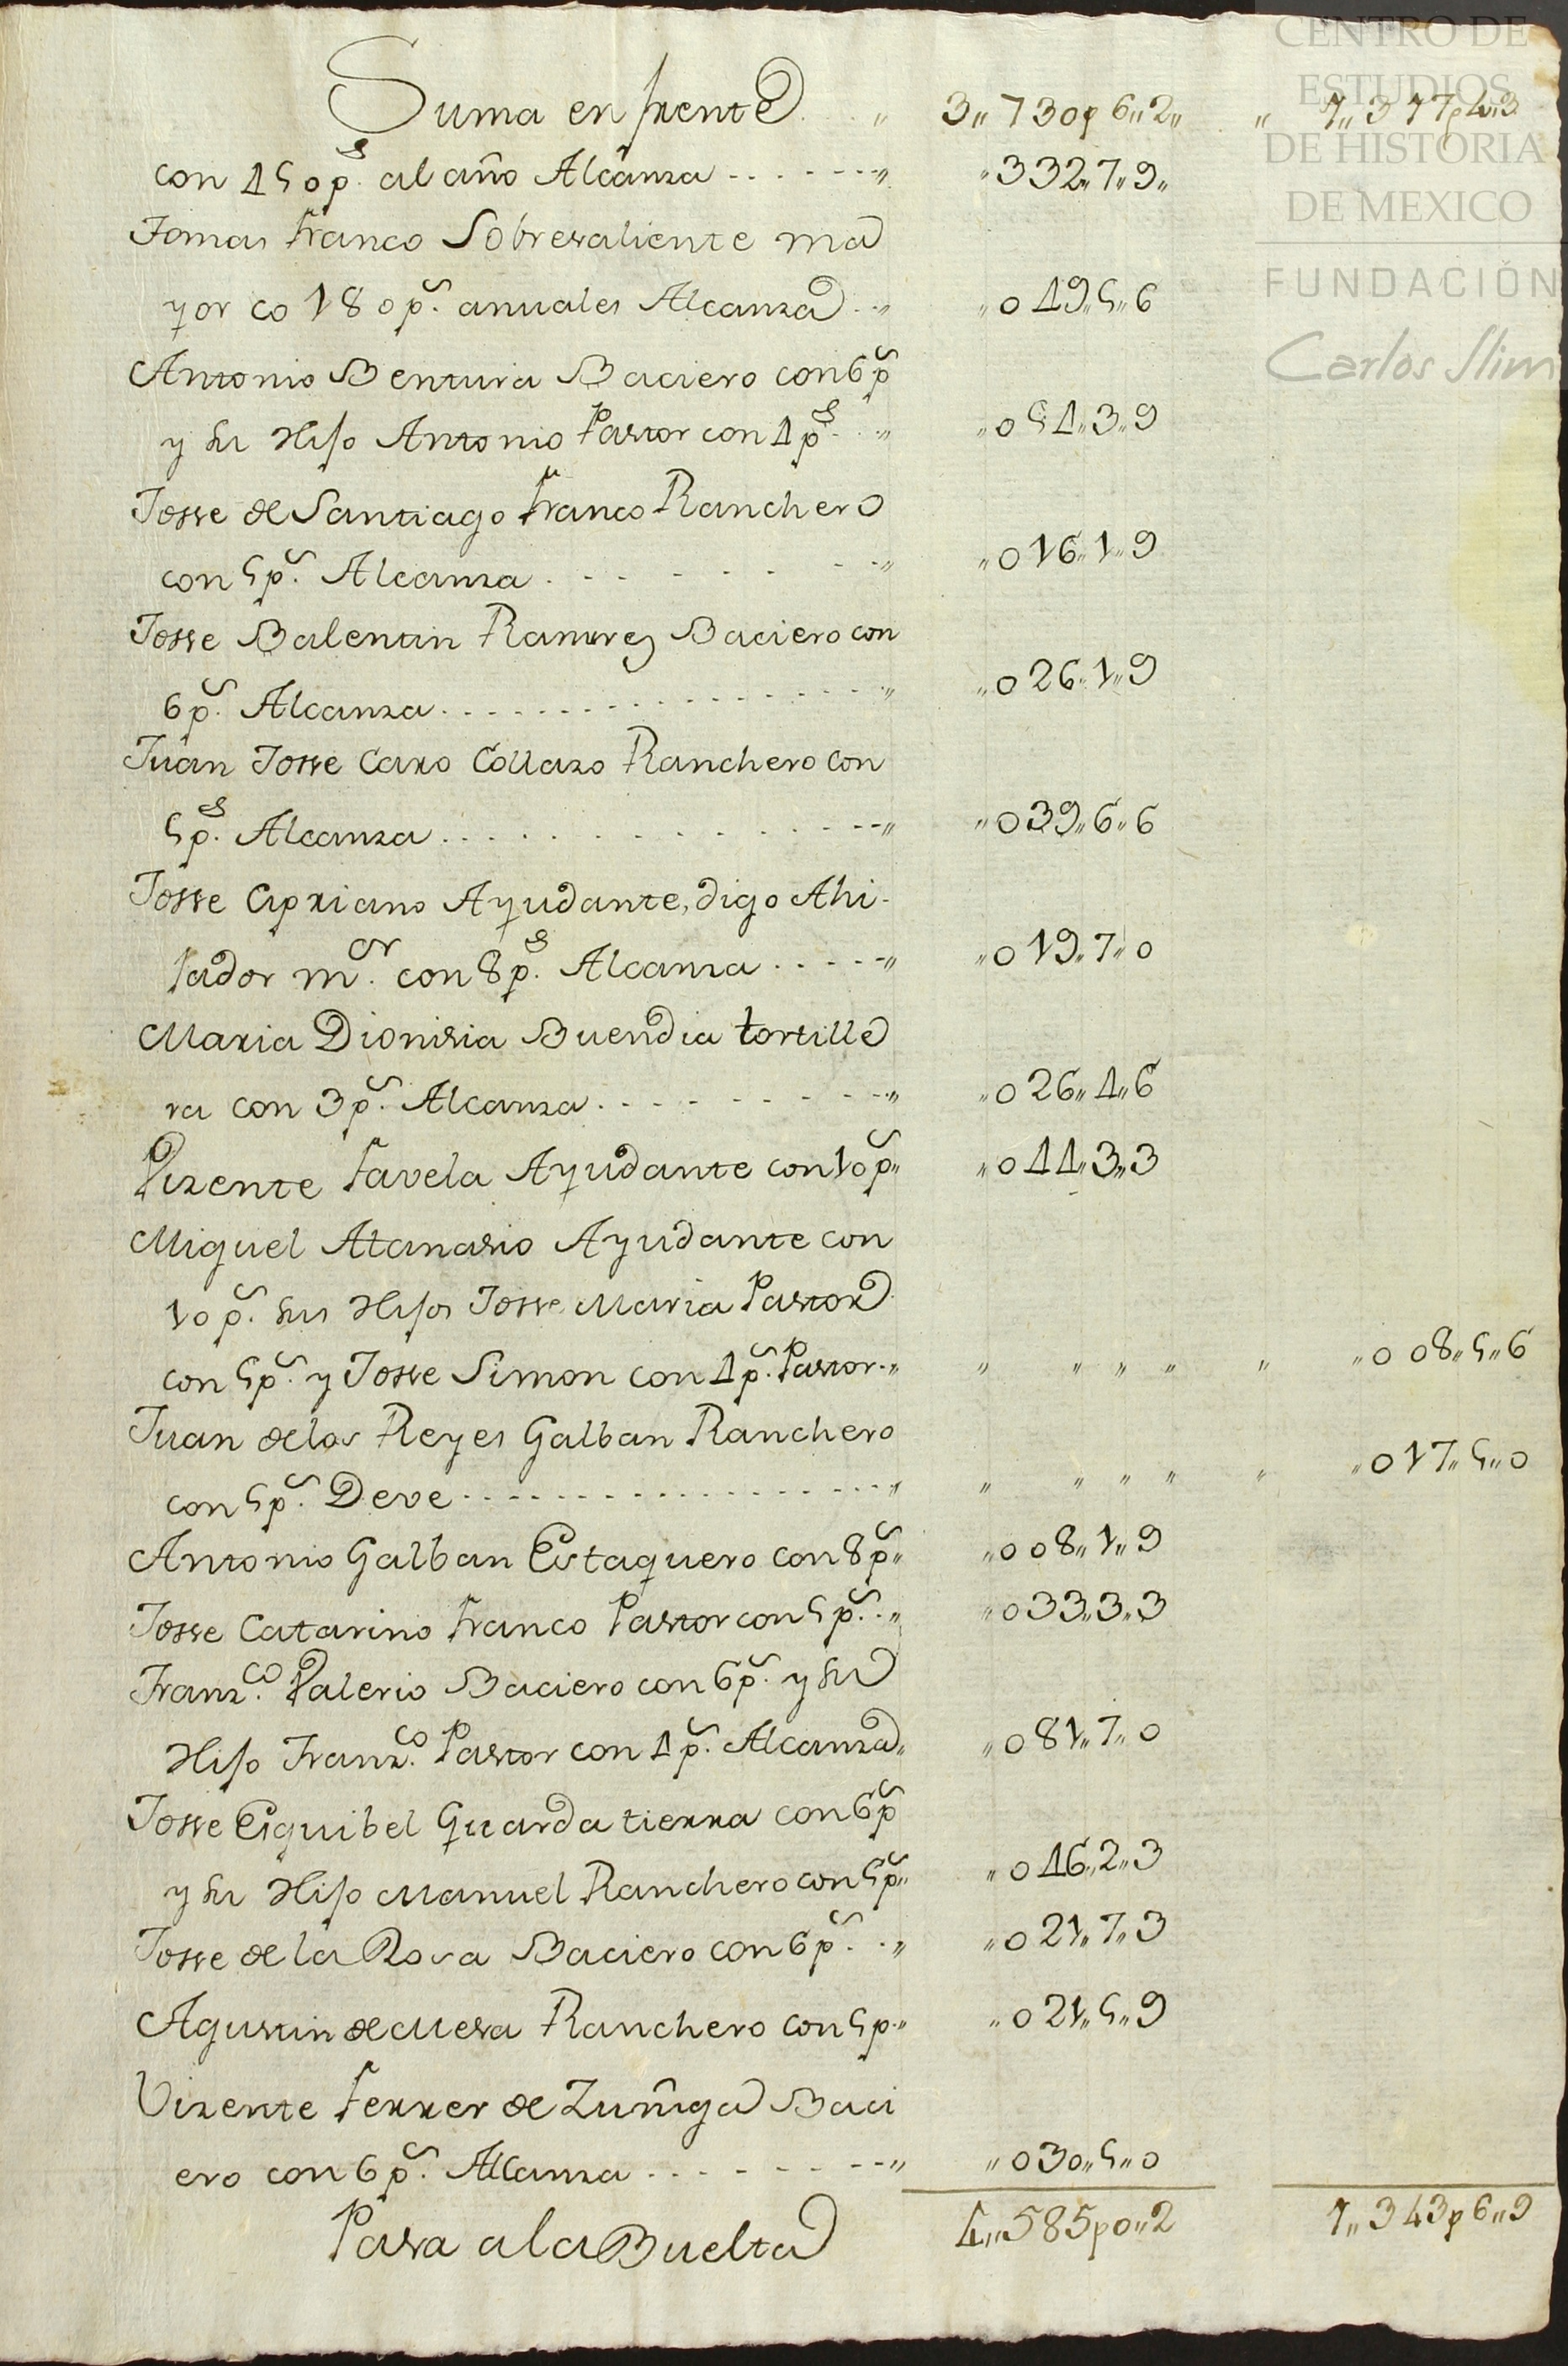 Suma en frente . . „ 3„730p6„2„ „ 1„317p4„3
con 450p.s al año Alcansa - - - - - - „ „332„7„9„
Tomas Franco Sobresaliente ma
yor co 180p.s anuales Alcansa - „ „049„5„6
Antonio Bentura Baciero con 6p.s
y su Hijo Antonio Pastor con 4p.s - „ „054„3„9
Josse de Santiago Franco Ranchero
con 5p.s Alcansa . - - - - - - „ „016„1„9
Josse Balentin Ramires Baciero con
6p.s Alcansa . - - - - - - - - „ „026„1„9
Juan Josse Caro Collazo Ranchero con
5p.s Alcansa . . . . . . . . - - „ „039„6„6
Josse Cipriano Ayudante, digo Ahi-
jador m.or con 8p.s Alcansa . . - - - „ „019„7„0
Maria Dionisia Buendia tortille
ra con 3p.s Alcansa . - - - - - - - „ „026„4„6
Vizente Favela Ayudante con 10p.s „ „044„3„3
Miguel Atanasio Ayudante con
10p.s sus Hijos Josse Maria Pastor
con 5p.s y Josse Simon con 4p.s Pastor - „ „ „ „ „ „ „008„5„6
Juan de los Reyes Galban Ranchero
con 5p.s Deve - - - - - - - - - - - „ „ „ „ „ „ „017„5„0
Antonio Galban Estaquero con 8p.s „ „008„1„9
Josse Catarino Franco Pastor con 5p.s . „ „033„3„3
Franz.co Valerio Baciero con 6p.s y su
Hijo Franz.co Pastor con 4p.s Alcansa „ „081„7„0
Josse Esquibel Guarda tierra con 6p.s
y su Hijo Manuel Ranchero con 5p.s „ „046„2„3
Josse de la Rosa Baciero con 6p.s . „ „021„7„3
Agustin de Mesa Ranchero con 5p. „ „021„5„9
Vizente Ferrer de Zuñiga Baci
ero con 6p.s Alcansa . - - - - - - „ „030„5„0
Pasa a la Buelta 4„585p0„2 1„343p6„9
CENTRO DE
ESTUDIOS
DE HISTORIA
DE MEXICO
FUNDACIÓN
Carlos Slim